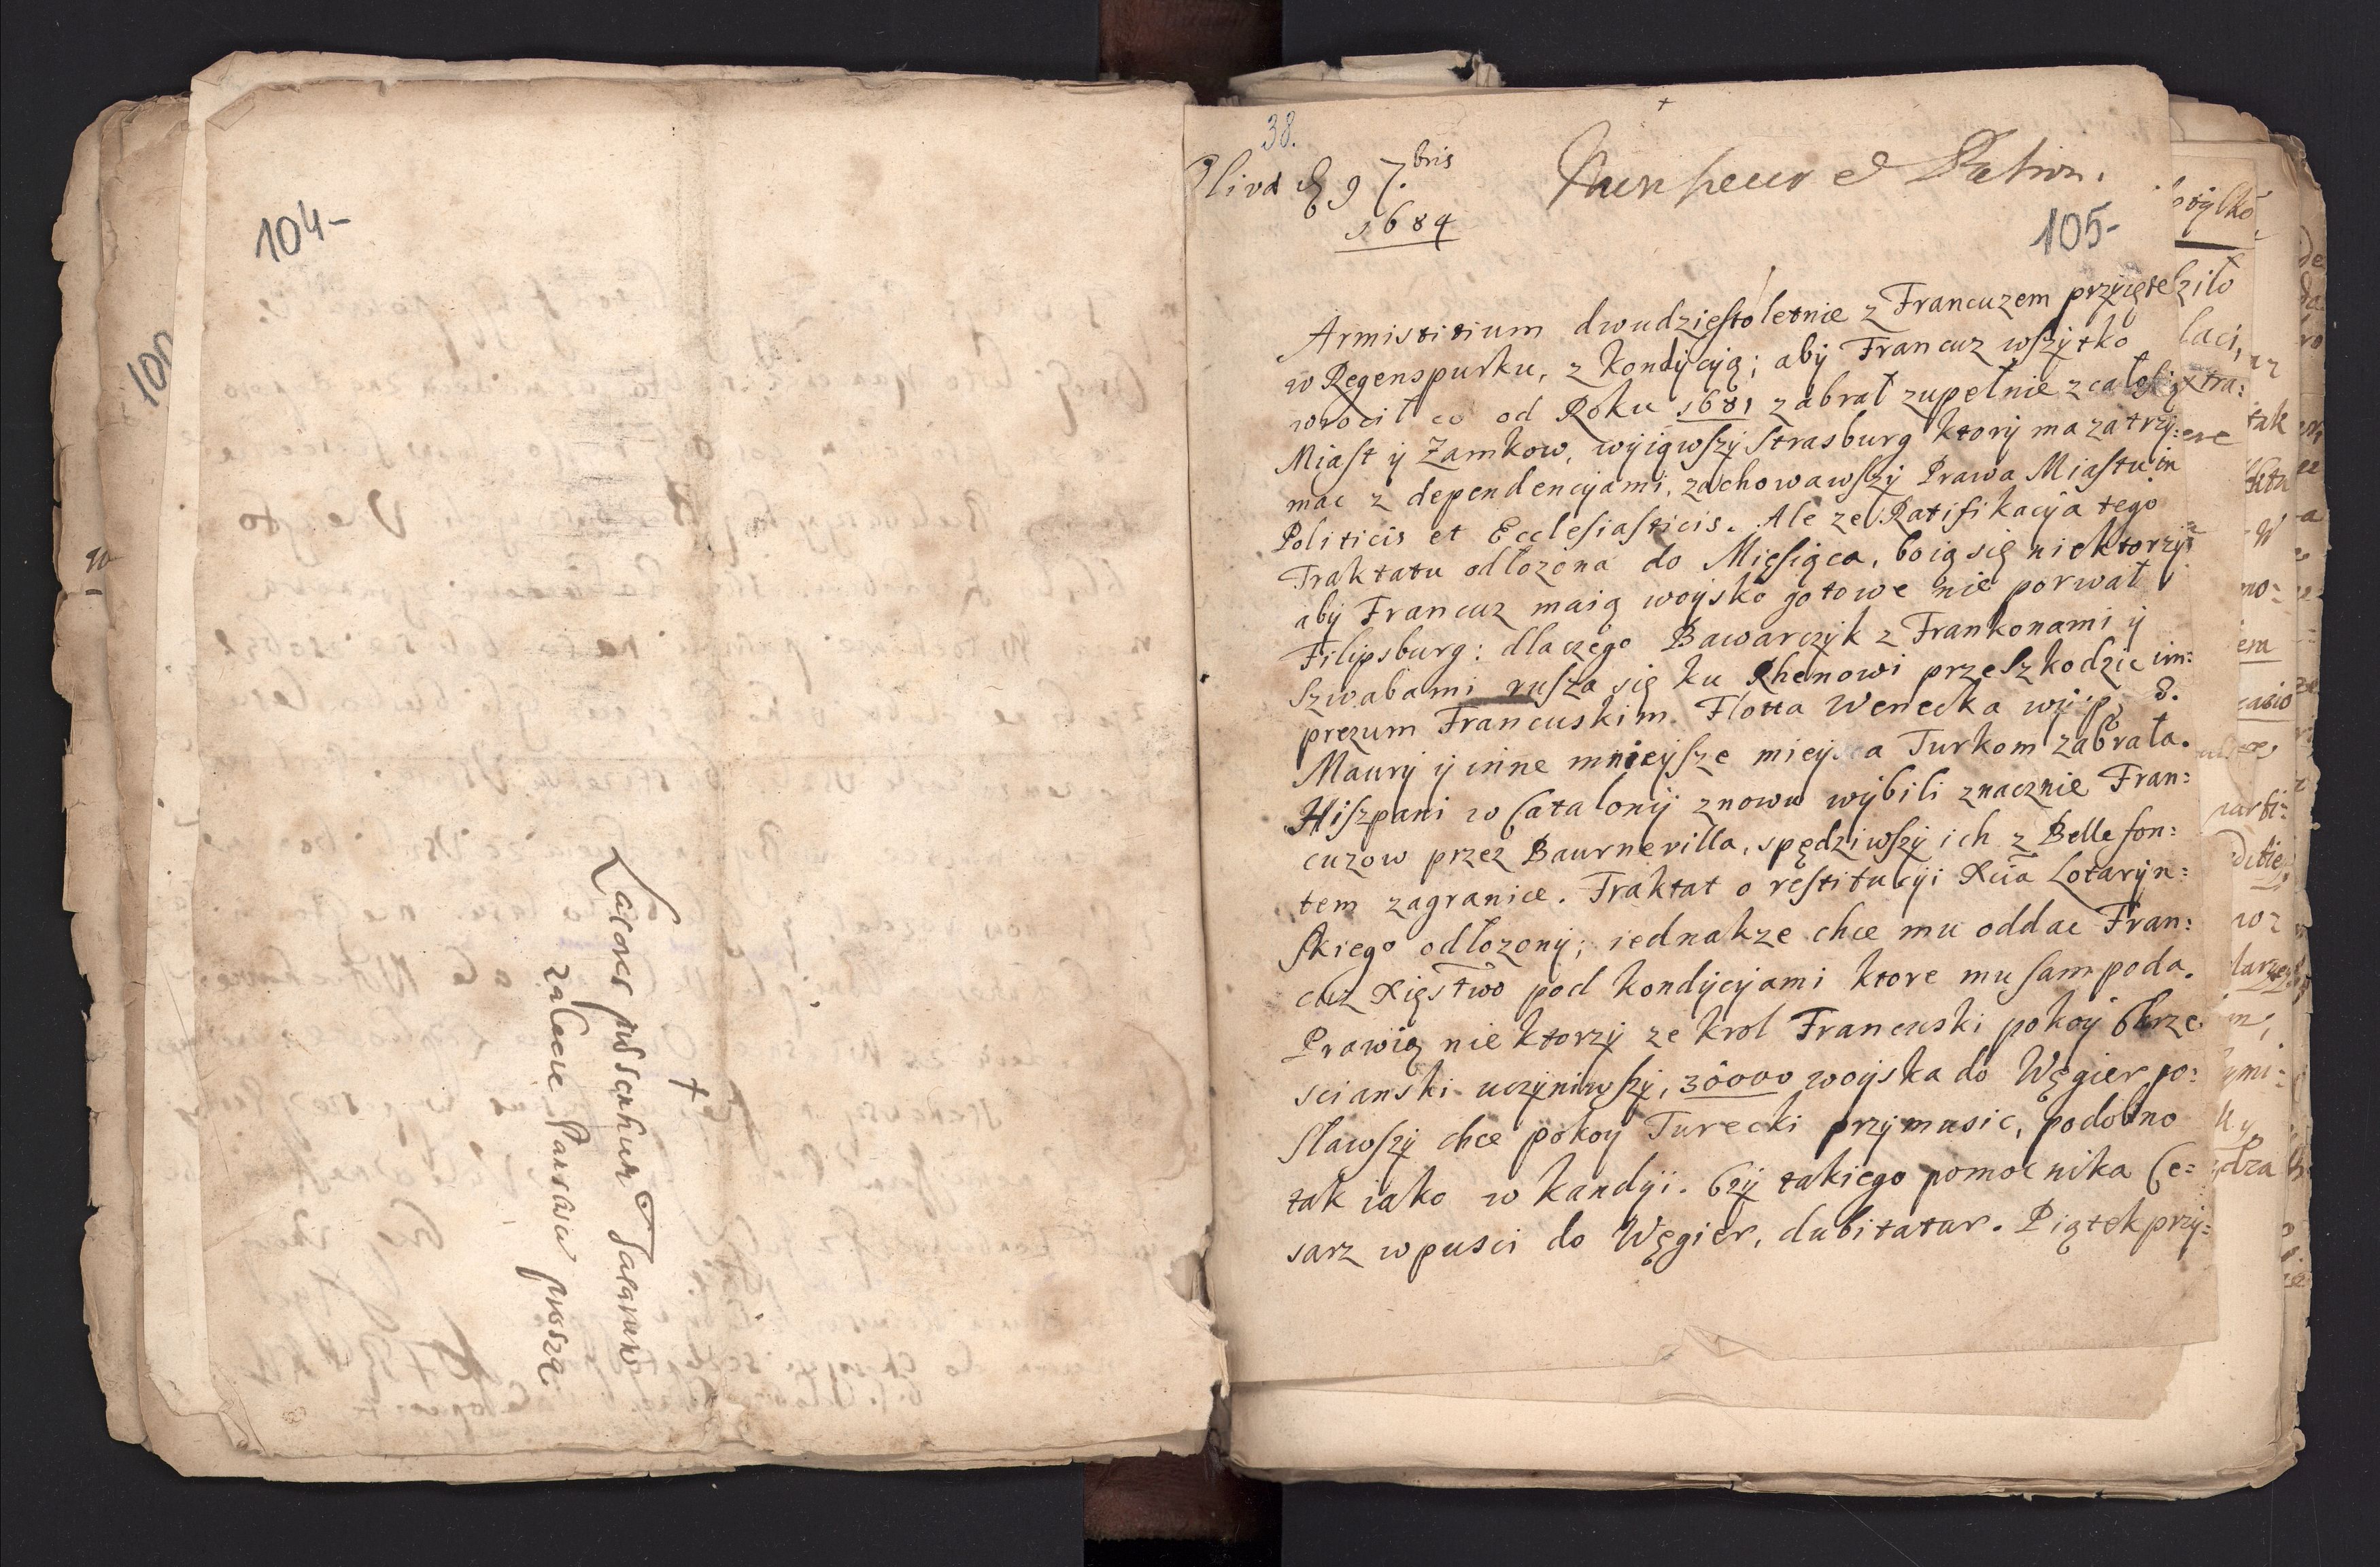 104-
zalecie Panskiei proszę
38.
Oliva d 9 7.bris
1684
105-
Armistitium dwudziestoletnie z Francuzem przyięte
w Regenspurku, z kondycyią; aby Francuz wszytko
wrocił co od Roku 1681 zabrał zupełnie z całoscią
Miast y Zamkow, wyiąwszy Strasburg ktory ma zatrzy:
mac z dependencyami, zachowawszy Prawa Miastu in
Politicis et Ecclesiasticis. Ale ze Ratifikacya tego
Traktatu odłozona do Miesiąca, boią się niektorzy
aby Francuz maią woysko gotowe nie porwał
Filipsburg: dlaczego Bawarczyk z Frankonami y
Szwabami rusza się ku Rhenowi przeszkodzic im:
prezum Francuskim. Flotta Wenecka wyspę S.
Maury y inne mnieysze mieysca Turkom zabrała.
Hiszpani w Catalonij znowu wybili znacznie Fran:
cuzow przez Baurnevilla, spędziwszy ich z Bellefon:
tem zagranice. Traktat o restitucyi Xcia Lotaryn:
skiego odłozony; iednakze chce mu oddac Fran:
cuz Xięstwo pod kondycyami ktore mu sam poda.
Prawią niektorzy ze krol Francuski pokoy Chrze
scianski uczyniwszy, 30000 woyska do Węgier po:
sławszy chce pokoy Turecki przymusic, podobno
tak iako w kandyi. Czy takiego pomocnika Ce:
sarz wpusci do Węgier, dubitatur. Piątek przy: